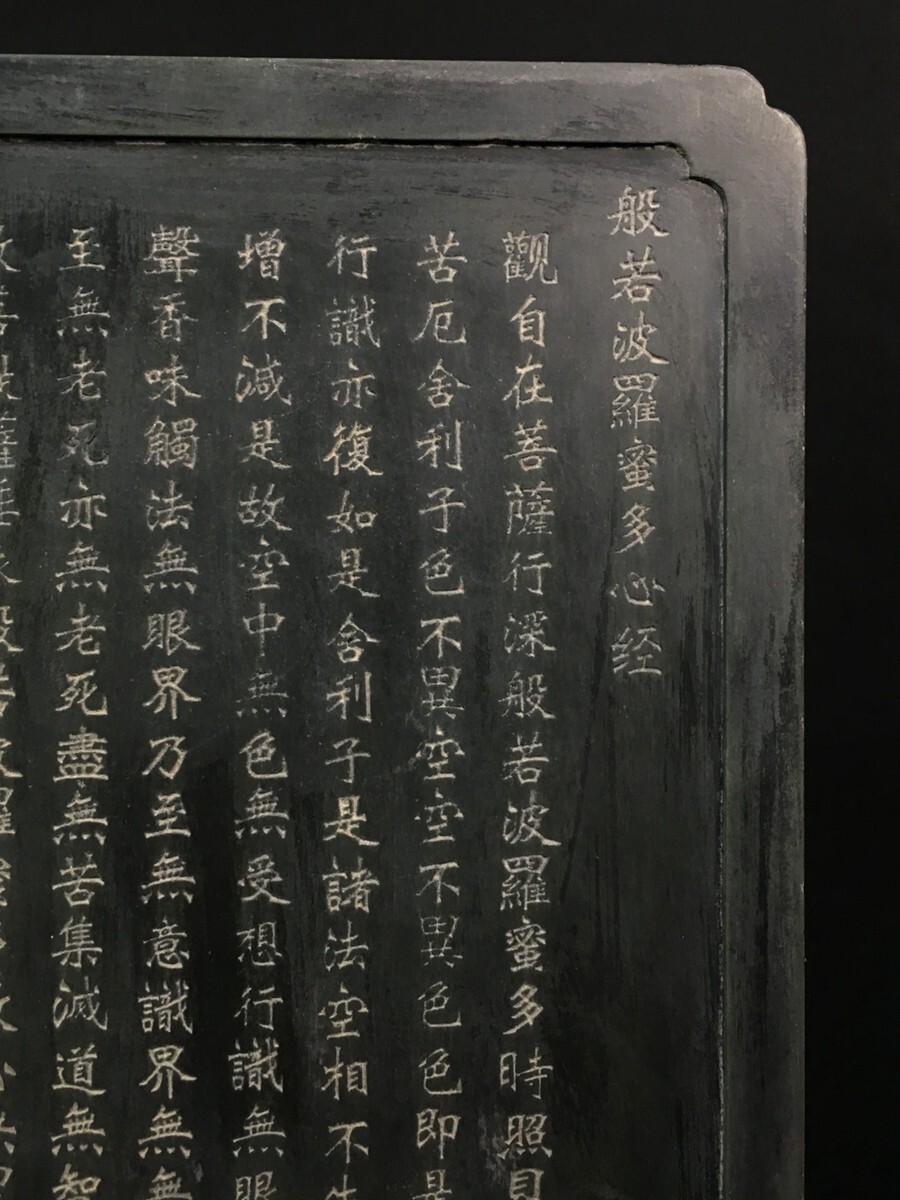 般若波羅蜜多心经
觀自在菩薩行深般若波羅蜜多時照見
苦厄舍利子色不異空空不異色色即是
行識亦復如是舍利子是諸法空相不生
增不減是故空中無色無受想行識無眼
聲香味觸法無眼界乃至無意識界無無
至無老死亦無老死盡無苦集滅道無智